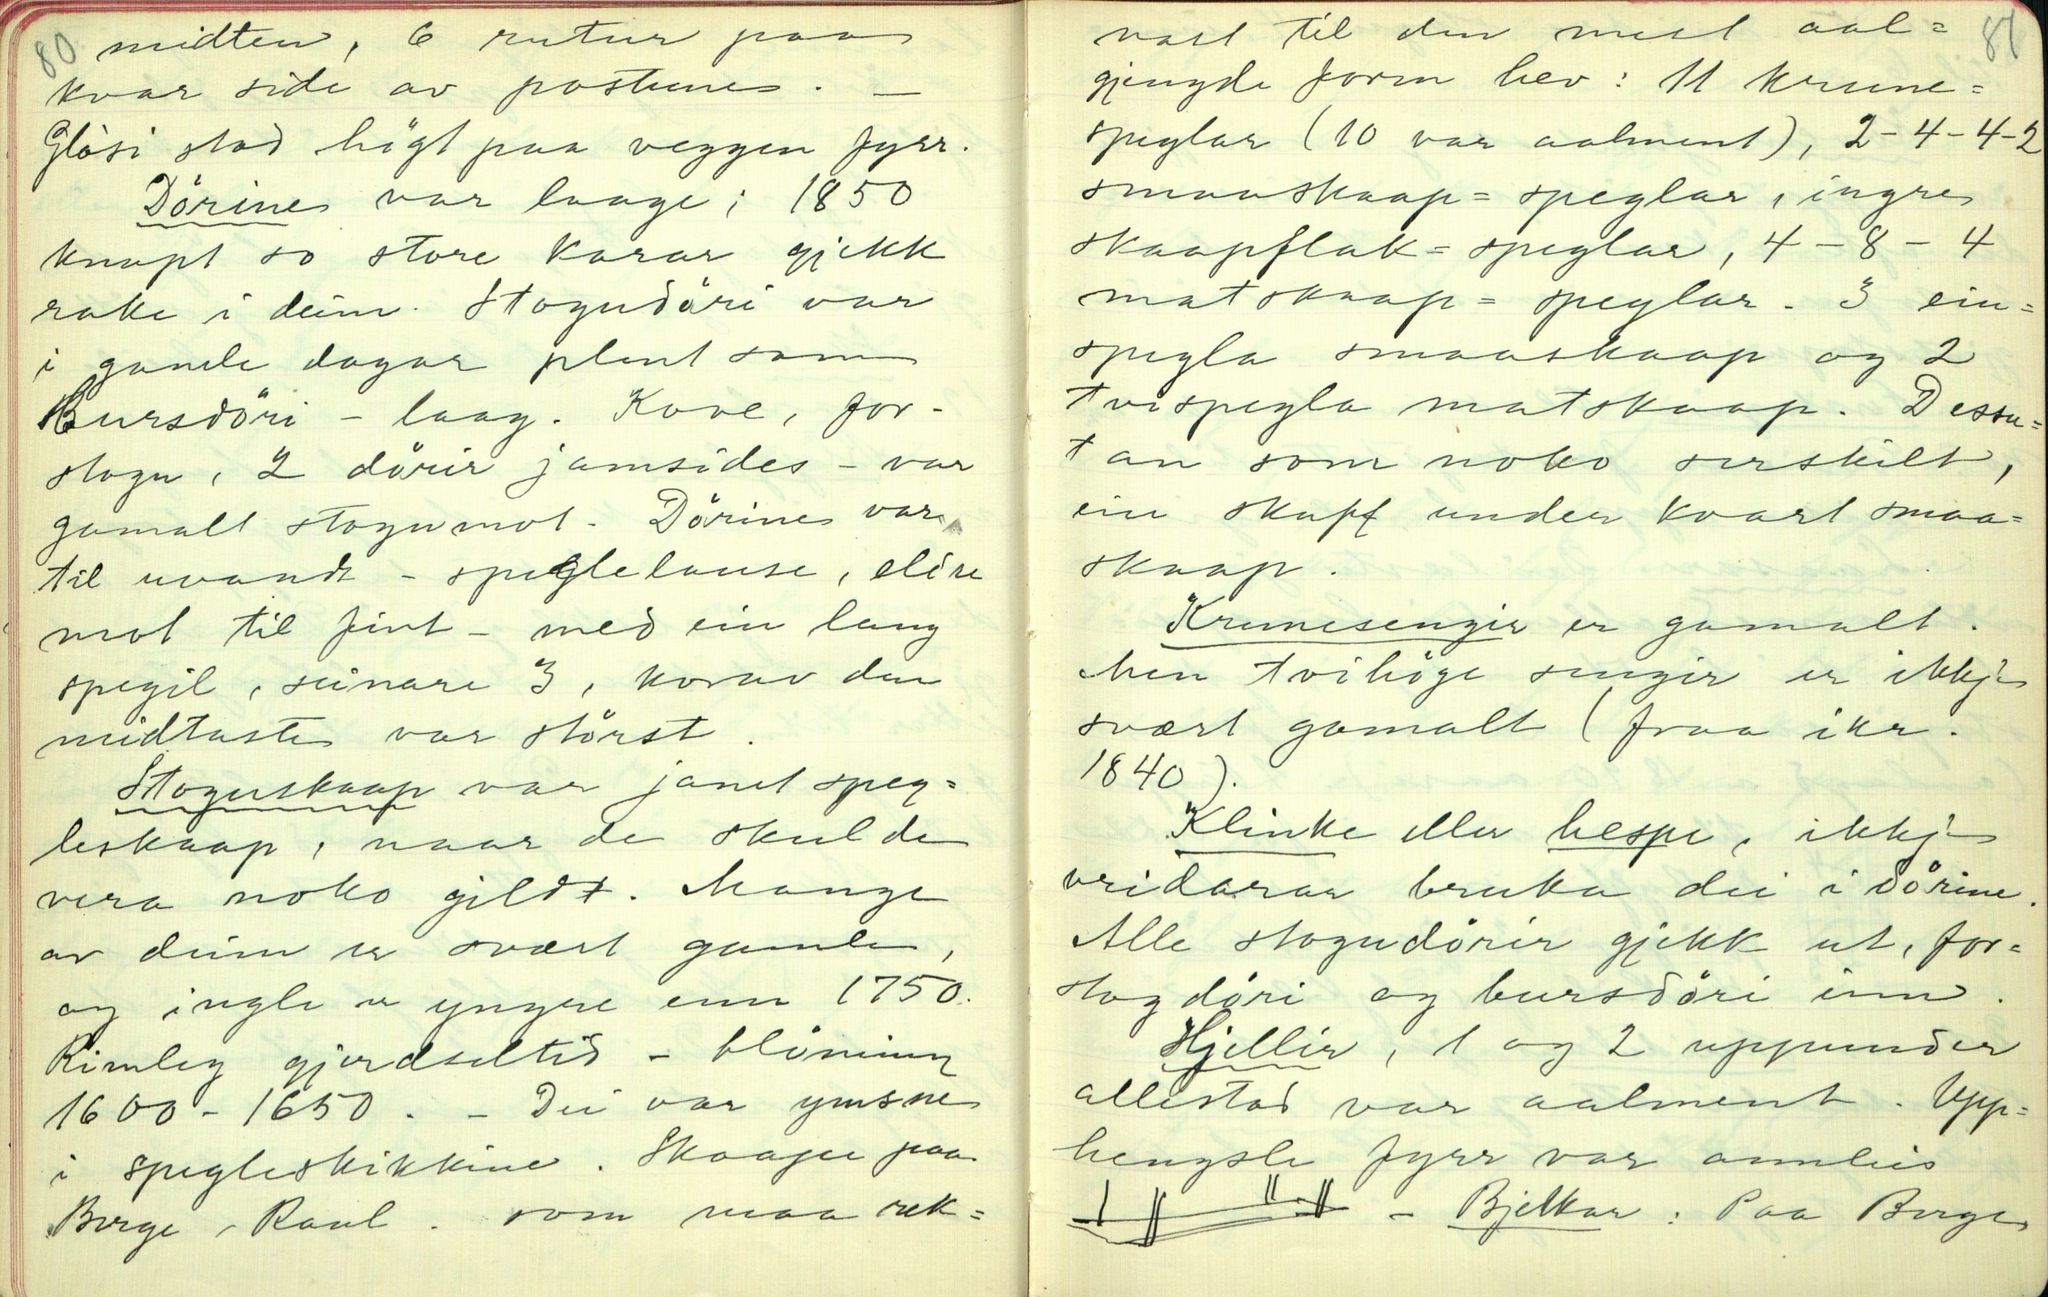 80
midten, 6 rutur paa
kvar side av postune. —
Glòsi stod högt paa veggen fyrr.
Dörine var laage; 1850
knapt so store karar gjekk
rake i deim. Stogudöri var
i gamle dagar plent som
Bursdöri – laag. Kove, for-
stogu, 2 dörir jamsides – var
gamalt stogumot. Dörine var
til uvands – speglelause, eldre
mot til fint – med ein lang
spegil, seinare 3, korav den
midtaste var störst.
Stoguskaap var jamt speg=
leskaap, naar de skulde
vera noko gildt. Mange
av deim er svært gamle,
og ingle er yngre enn 1750.
Rimleg gjerdseltid – blöming
1600 - 1650. – Dei var ymsne
i spegleskikkine. Skaapet paa
Berge, Raul. som maa rek=
81
nast til den mest aal=
gjengde form hev: 11 krune=
speglar (10 var aalment), 2-4-4-2
smaaskaap=speglar, ingre
skaapflak=speglar, 4 – 8 – 4
matskaap=speglar. 3 ein=
spegla smaaskaap og 2
tvispegla matskaap. Dessu=
tan som noko serskilt,
ein skuff under kvart smaa=
skaap.
Krunesengir er gamalt.
Men tvihöge sengir er ikkje
svært gamalt (fraa ikr.
1840).
Klinke eller hespe, ikkje
vridarar bruka dei i dörine.
Alle stogudörir gjekk ut, for=
stogdöri og bursdöri inn.
Hjellir, 1 og 2 uppunder
allestad var aalment. Upp=
hengsle fyrr var annleis
– Bjelkar: Paa Berge